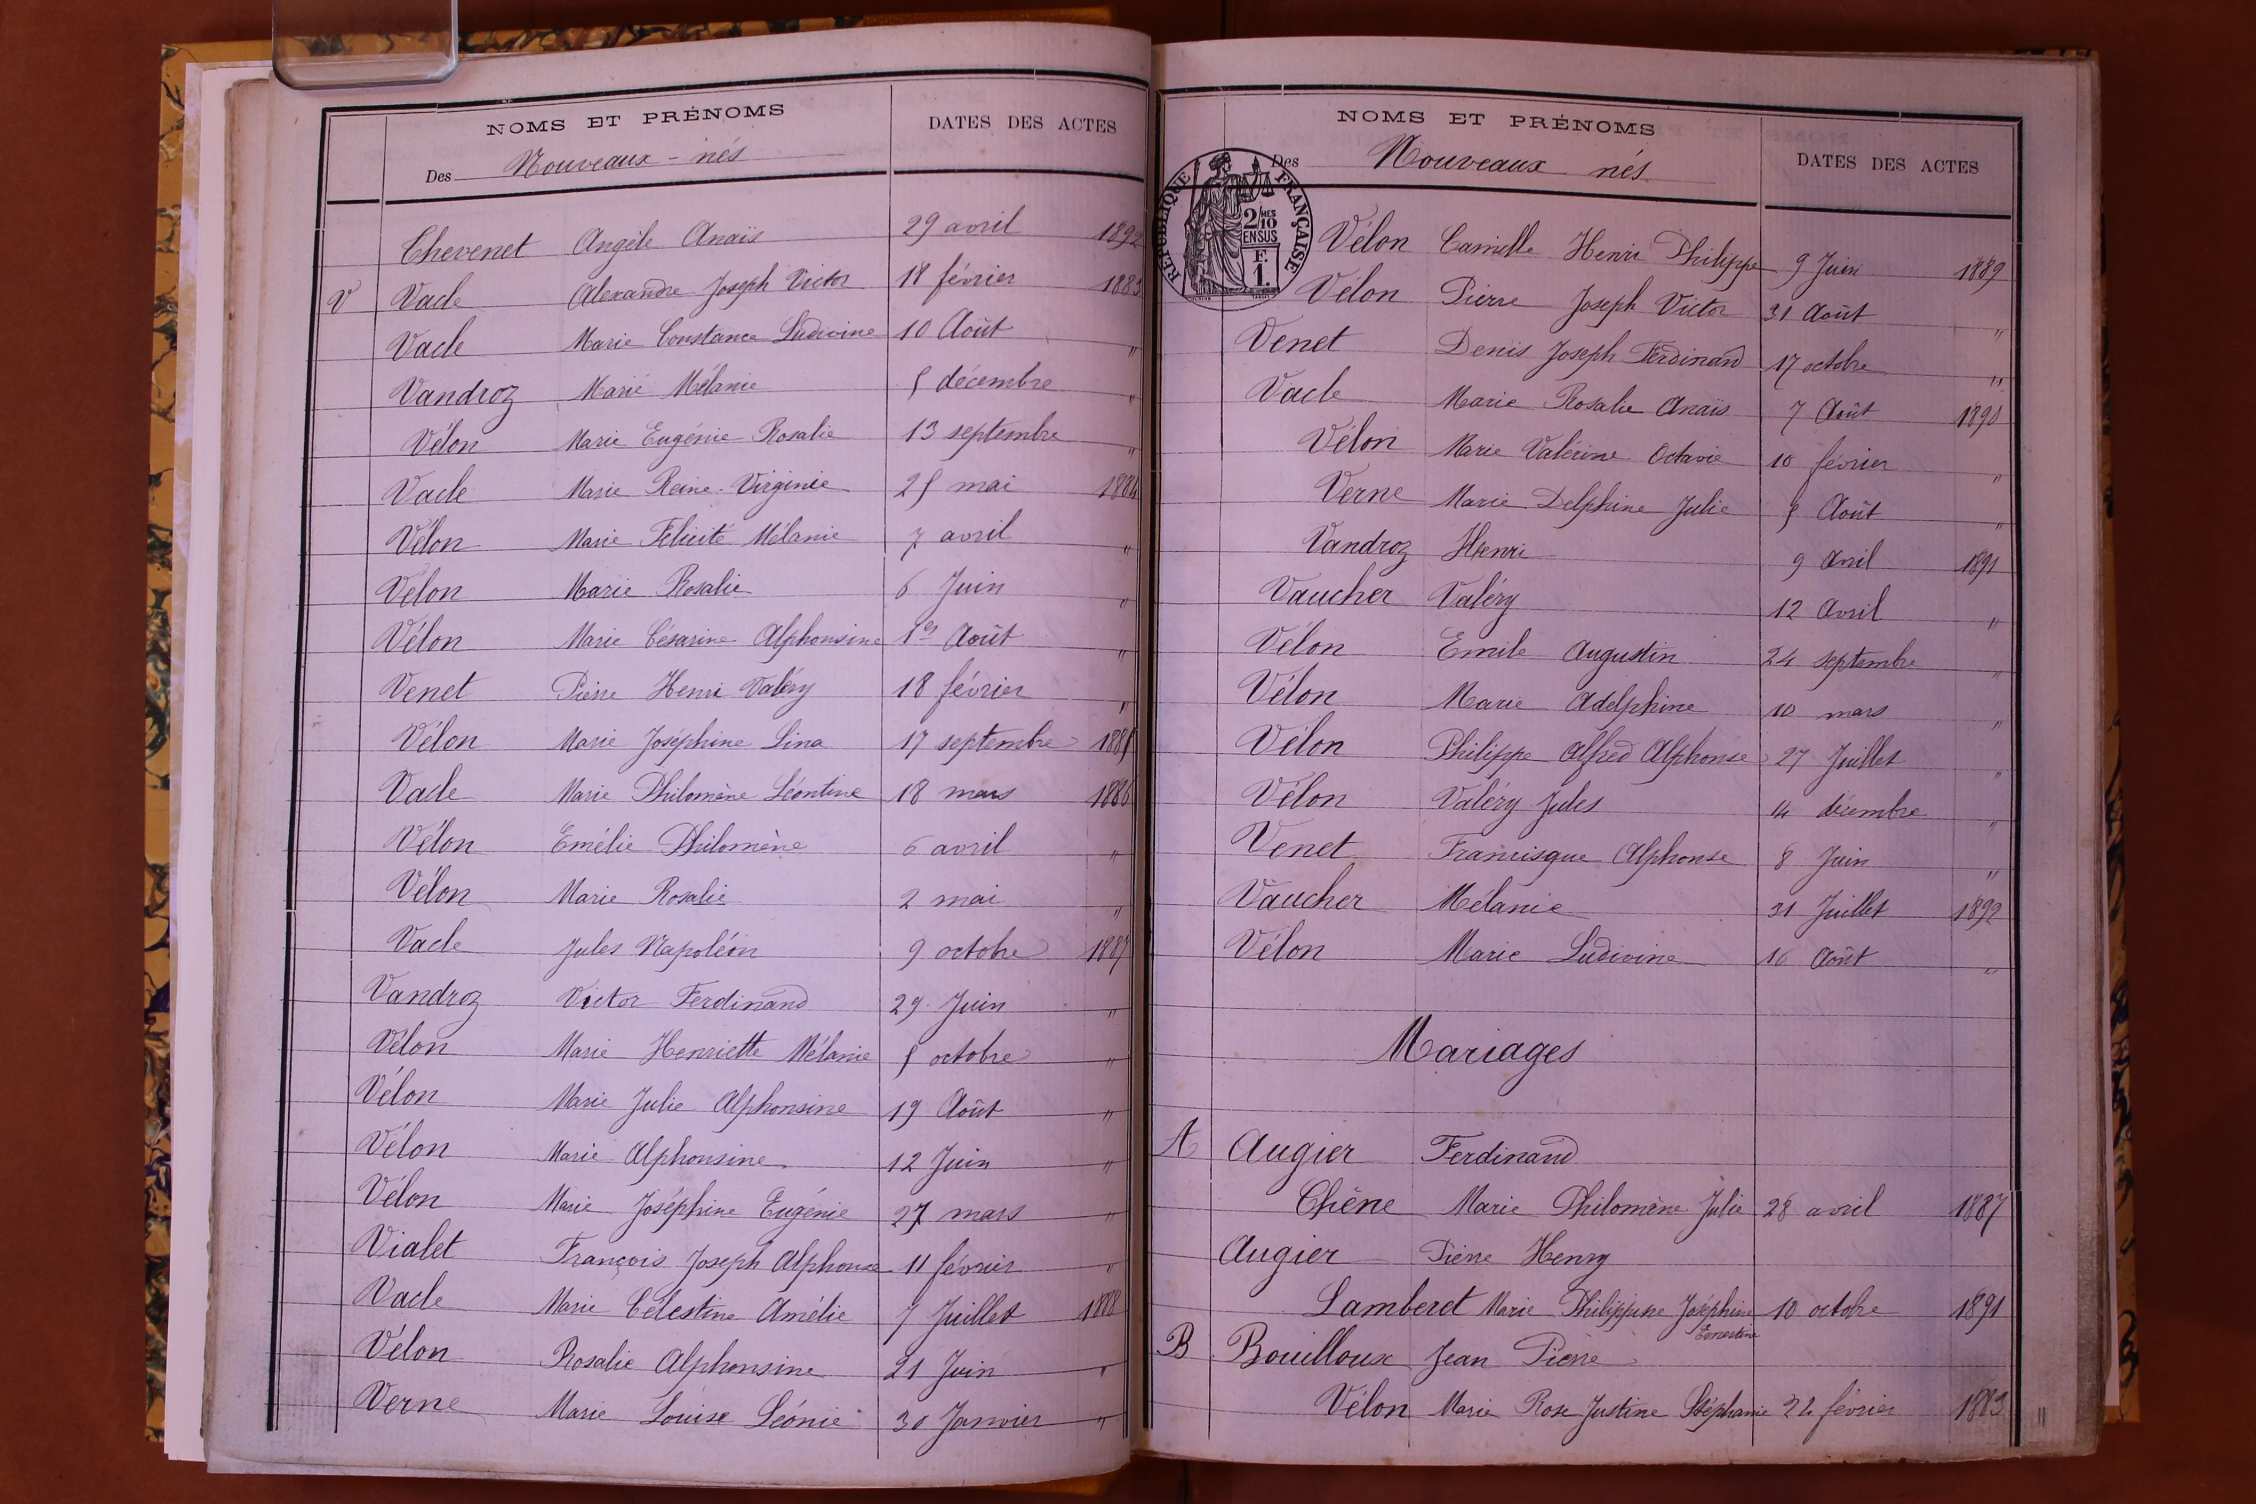 NOMS ET PRÉNOMS DATES DES ACTES
Des Nouveaux-nés
Chevenet Angèle Anaïs 29 avril 1892
V Vacle Alexandre Joseph Victor 18 février 1883
Vacle Marie Constance Ludivine 10 Août "
Vandroz Marie Mélanie 5 décembre "
Vélon Marie Eugénie Rosalie 13 septembre "
Vacle Marie Reine Virginie 25 mai 1884
Vélon Marie Félicité Mélanie 7 avril "
Vélon Marie Rosalie 6 Juin "
Vélon Marie Césarine Alphonsine 1er Août "
Venet Pierre Henri Valéry 18 février "
Vélon Marie Joséphine Lina 17 septembre 1885
Vacle Marie Philomène Léontine 18 mars 1886
Vélon Emélie Philomène 6 avril "
Vélon Marie Rosalie 2 mai "
Vacle Jules Napoléon 9 octobre 1887
Vandroz Victor Ferdinand 29 Juin "
Vélon Marie Henriette Mélanie 5 octobre "
Vélon Marie Julie Alphonsine 19 Août "
Vélon Marie Alphonsine 12 Juin "
Vélon Marie Joséphine Eugénie 27 mars "
Vialet François Joseph Alphonse 11 février "
Vacle Marie Célestine Amélie 7 Juillet 1888
Vélon Rosalie Alphonsine 21 Juin "
Verne Marie Louise Léonie 30 Janvier "
NOMS ET PRÉNOMS DATES DES ACTES
Des Nouveaux nés
RÉPUBLIQUE FRANÇAISE
2/MES 10
EN SUS
F.
1.
Vélon Camille Henri Philippe 9 Juin 1889
Vélon Pierre Joseph Victor 31 Août "
Venet Denis Joseph Ferdinand 17 octobre "
Vacle Marie Rosalie Anaïs 7 Août 1890
Vélon Marie Valérine Octavie 10 février "
Verne Marie Delphine Julie 5 Août "
Vandroz Henri 9 Avril 1891
Vaucher Valéry 12 Avril "
Vélon Emile Augustin 24 septembre "
Vélon Marie Adelphine 10 mars "
Vélon Philippe Alfred Alphonse 27 Juillet "
Vélon Valéry Jules 14 décembre "
Venet Francisque Alphonse 8 Juin "
Vaucher Mélanie 31 Juillet 1892
Vélon Marie Ludivine 16 Août "
Mariages
A Augier Ferdinand
Chêne Marie Philomène Julie 28 avril 1887
Augier Pierre Henry
Lamberet Marie Philippine Joséphine 10 octobre 1891
Ernestine
B Bouilloux Jean Pierre
Vélon Marie Rose Justine Stéphanie 22 février 1883